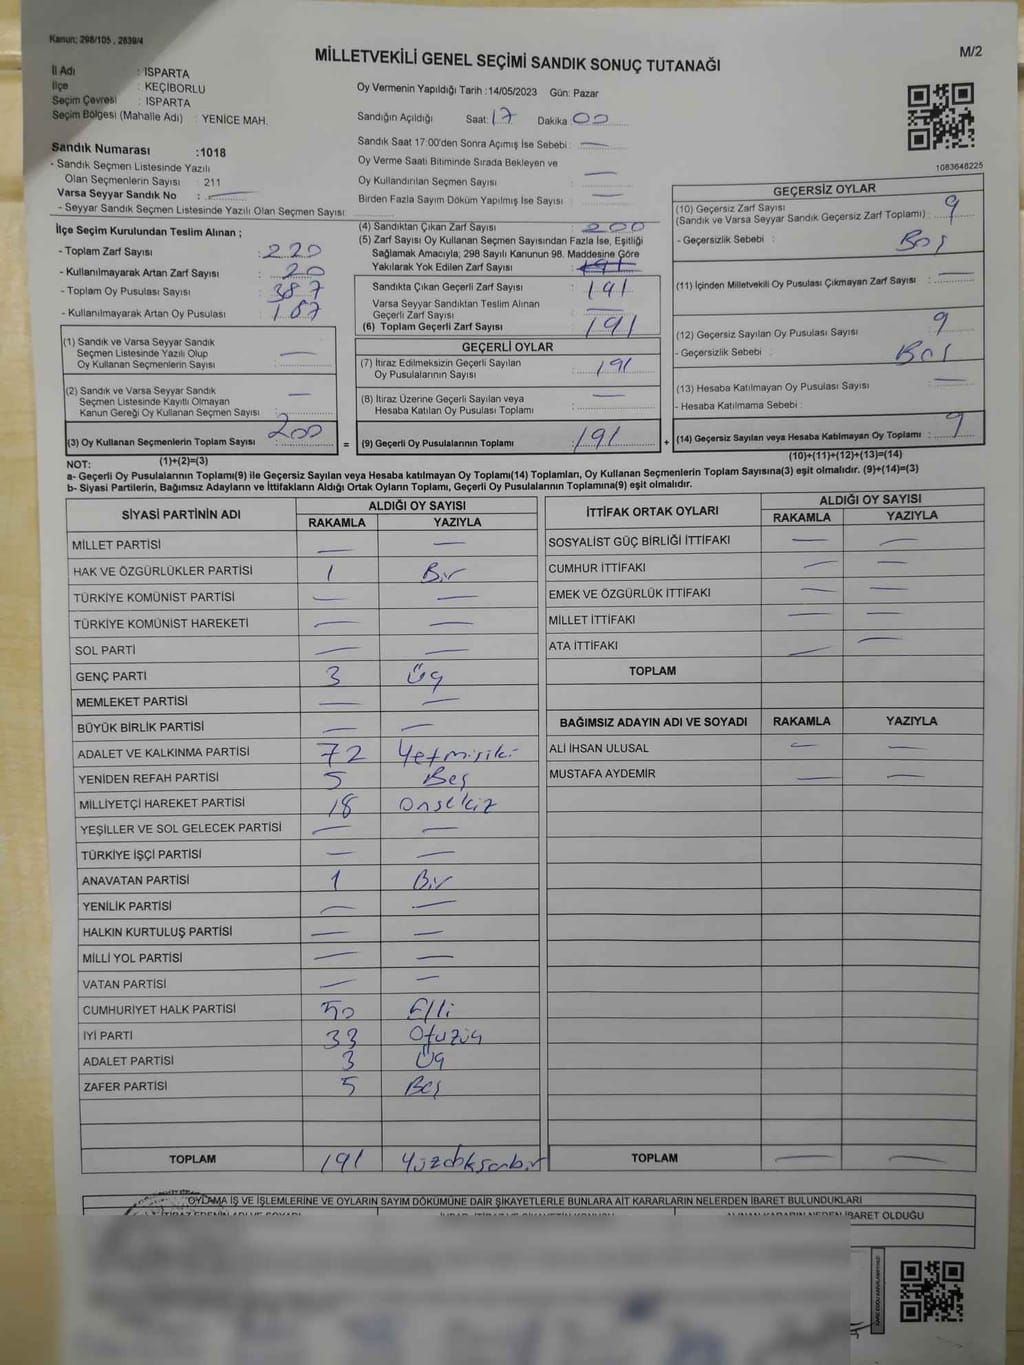 Kanun; 298/105 , 2839/4
MİLLETVEKİLİ GENEL SEÇİMİ SANDIK SONUÇ TUTANAĞI
M/2
İl Adı : ISPARTA
İlçe : KEÇİBORLU
Seçim Çevresi : ISPARTA
Seçim Bölgesi (Mahalle Adı) : YENİCE MAH.
Sandık Numarası :1018
- Sandık Seçmen Listesinde Yazılı
Olan Seçmenlerin Sayısı : 211
Varsa Seyyar Sandık No : —
- Seyyar Sandık Seçmen Listesinde Yazılı Olan Seçmen Sayısı:
Oy Vermenin Yapıldığı Tarih :14/05/2023 Gün: Pazar
Sandığın Açıldığı Saat: 17 Dakika: 00
Sandık Saat 17:00'den Sonra Açımış İse Sebebi : —
Oy Verme Saati Bitiminde Sırada Bekleyen ve
Oy Kullandırılan Seçmen Sayısı : —
Birden Fazla Sayım Döküm Yapılmış İse Sayısı : —
1083648225
İlçe Seçim Kurulundan Teslim Alınan ;
- Toplam Zarf Sayısı : 220
- Kullanılmayarak Artan Zarf Sayısı : 20
- Toplam Oy Pusulası Sayısı : 387
- Kullanılmayarak Artan Oy Pusulası : 187
(1) Sandık ve Varsa Seyyar Sandık
Seçmen Listesinde Yazılı Olup
Oy Kullanan Seçmenlerin Sayısı : —
(2) Sandık ve Varsa Seyyar Sandık
Seçmen Listesinde Kayıtlı Olmayan
Kanun Gereği Oy Kullanan Seçmen Sayısı : —
(3) Oy Kullanan Seçmenlerin Toplam Sayısı : 200
(1)+(2)=(3)
(4) Sandıktan Çıkan Zarf Sayısı : 200
(5) Zarf Sayısı Oy Kullanan Seçmen Sayısından Fazla İse, Eşitliği
Sağlamak Amacıyla; 298 Sayılı Kanunun 98. Maddesine Göre
Yakılarak Yok Edilen Zarf Sayısı : 191
Sandıkta Çıkan Geçerli Zarf Sayısı : 191
Varsa Seyyar Sandıktan Teslim Alınan
Geçerli Zarf Sayısı : —
(6) Toplam Geçerli Zarf Sayısı : 191
GEÇERLİ OYLAR
(7) İtiraz Edilmeksizin Geçerli Sayılan
Oy Pusulalarının Sayısı : 191
(8) İtiraz Üzerine Geçerli Sayılan veya
Hesaba Katılan Oy Pusulası Toplamı : —
= (9) Geçerli Oy Pusulalarının Toplamı : 191
GEÇERSİZ OYLAR
(10) Geçersiz Zarf Sayısı
(Sandık ve Varsa Seyyar Sandık Geçersiz Zarf Toplamı) : 9
- Geçersizlik Sebebi : Boş
(11) İçinden Milletvekili Oy Pusulası Çıkmayan Zarf Sayısı : —
(12) Geçersiz Sayılan Oy Pusulası Sayısı : 9
- Geçersizlik Sebebi : Boş
(13) Hesaba Katılmayan Oy Pusulası Sayısı : —
- Hesaba Katılmama Sebebi :
+ (14) Geçersiz Sayılan veya Hesaba Katılmayan Oy Toplamı : 9
(10)+(11)+(12)+(13)=(14)
NOT:
a- Geçerli Oy Pusulalarının Toplamı(9) ile Geçersiz Sayılan veya Hesaba katılmayan Oy Toplamı(14) Toplamları, Oy Kullanan Seçmenlerin Toplam Sayısına(3) eşit olmalıdır. (9)+(14)=(3)
b- Siyasi Partilerin, Bağımsız Adayların ve İttifakların Aldığı Ortak Oyların Toplamı, Geçerli Oy Pusulalarının Toplamına(9) eşit olmalıdır.
SİYASİ PARTİNİN ADI ALDIĞI OY SAYISI
RAKAMLA YAZIYLA
MİLLET PARTİSİ — —
HAK VE ÖZGÜRLÜKLER PARTİSİ 1 Bir
TÜRKİYE KOMÜNİST PARTİSİ — —
TÜRKİYE KOMÜNİST HAREKETİ — —
SOL PARTİ — —
GENÇ PARTİ 3 Üç
MEMLEKET PARTİSİ — —
BÜYÜK BİRLİK PARTİSİ — —
ADALET VE KALKINMA PARTİSİ 72 Yetmişiki
YENİDEN REFAH PARTİSİ 5 Beş
MİLLİYETÇİ HAREKET PARTİSİ 18 onsekiz
YEŞİLLER VE SOL GELECEK PARTİSİ — —
TÜRKİYE İŞÇİ PARTİSİ — —
ANAVATAN PARTİSİ 1 Bir
YENİLİK PARTİSİ — —
HALKIN KURTULUŞ PARTİSİ — —
MİLLİ YOL PARTİSİ — —
VATAN PARTİSİ — —
CUMHURİYET HALK PARTİSİ 50 Elli
İYİ PARTİ 33 Otuzüç
ADALET PARTİSİ 3 Üç
ZAFER PARTİSİ 5 Beş
TOPLAM 191 Yüzdoksanbir
İTTİFAK ORTAK OYLARI ALDIĞI OY SAYISI
RAKAMLA YAZIYLA
SOSYALİST GÜÇ BİRLİĞİ İTTİFAKI — —
CUMHUR İTTİFAKI — —
EMEK VE ÖZGÜRLÜK İTTİFAKI — —
MİLLET İTTİFAKI — —
ATA İTTİFAKI — —
TOPLAM
BAĞIMSIZ ADAYIN ADI VE SOYADI RAKAMLA YAZIYLA
ALİ İHSAN ULUSAL — —
MUSTAFA AYDEMİR — —
TOPLAM — —
OYLAMA İŞ VE İŞLEMLERİNE VE OYLARIN SAYIM DÖKÜMÜNE DAİR ŞİKAYETLERLE BUNLARA AİT KARARLARIN NELERDEN İBARET BULUNDUKLARI
İBARET OLDUĞU